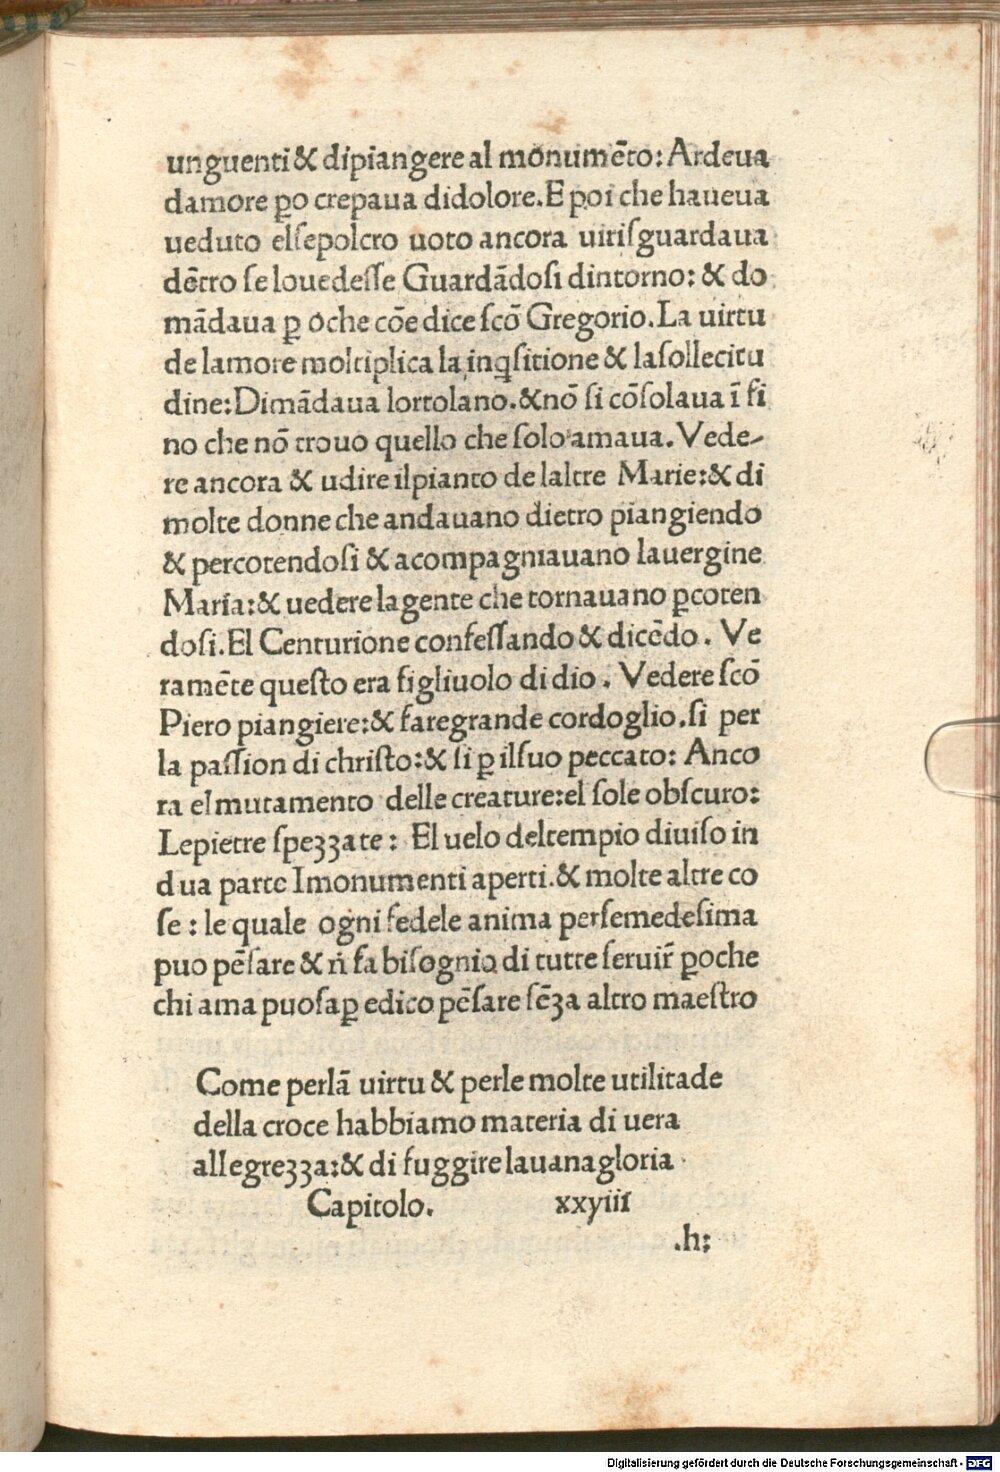 unguenti & dipiangere al monumēto: Ardeua
damore ꝑo crepaua didolore. E poi che haueua
ueduto elsepolcro uoto ancora uirisguardaua
dētro se louedesse Guardādosi dintorno: & do
mādaua ꝑ oche cōe dice scō Gregorio. La uirtu
de lamore moltiplica la inqsitione & lasollecitu
dine: Dimādaua lortolano. & nō si cōsolaua ī fi
no che nō trouo quello che solo amaua. Vede-
re ancora & udire ilpianto de laltre Marie: & di
molte donne che andauano dietro piangiendo
& percotendosi & acompagniauano lauergine
Maria: & uedere lagente che tornauano ꝑcoten
dosi. El Centurione confessando & dicēdo. Ve
ramēte questo era figliuolo di dio. Vedere scō
Piero piangiere: & faregrande cordoglio. si per
la passion di christo: & si ꝑ ilsuo peccato: Anco
ra el mutamento delle creature: el sole obscuro:
Lepietre spezzate: El uelo deltempio diuiso in
dua parte Imonumenti aperti. & molte altre co
se: le quale ogni fedele anima persemedesima
puo pēsare & n̄ fa bisognio di tutte seruir̄ ꝑoche
chi ama puosaꝑ edico pēsare sēza altro maestro
Come perlā uirtu & perle molte utilitade
della croce habbiamo materia di uera
allegrezza: & di fuggire lauanagloria
Capitolo. xxyiii
.h:
Digitalisierung gefördert durch die Deutsche Forschungsgemeinschaft - DFG